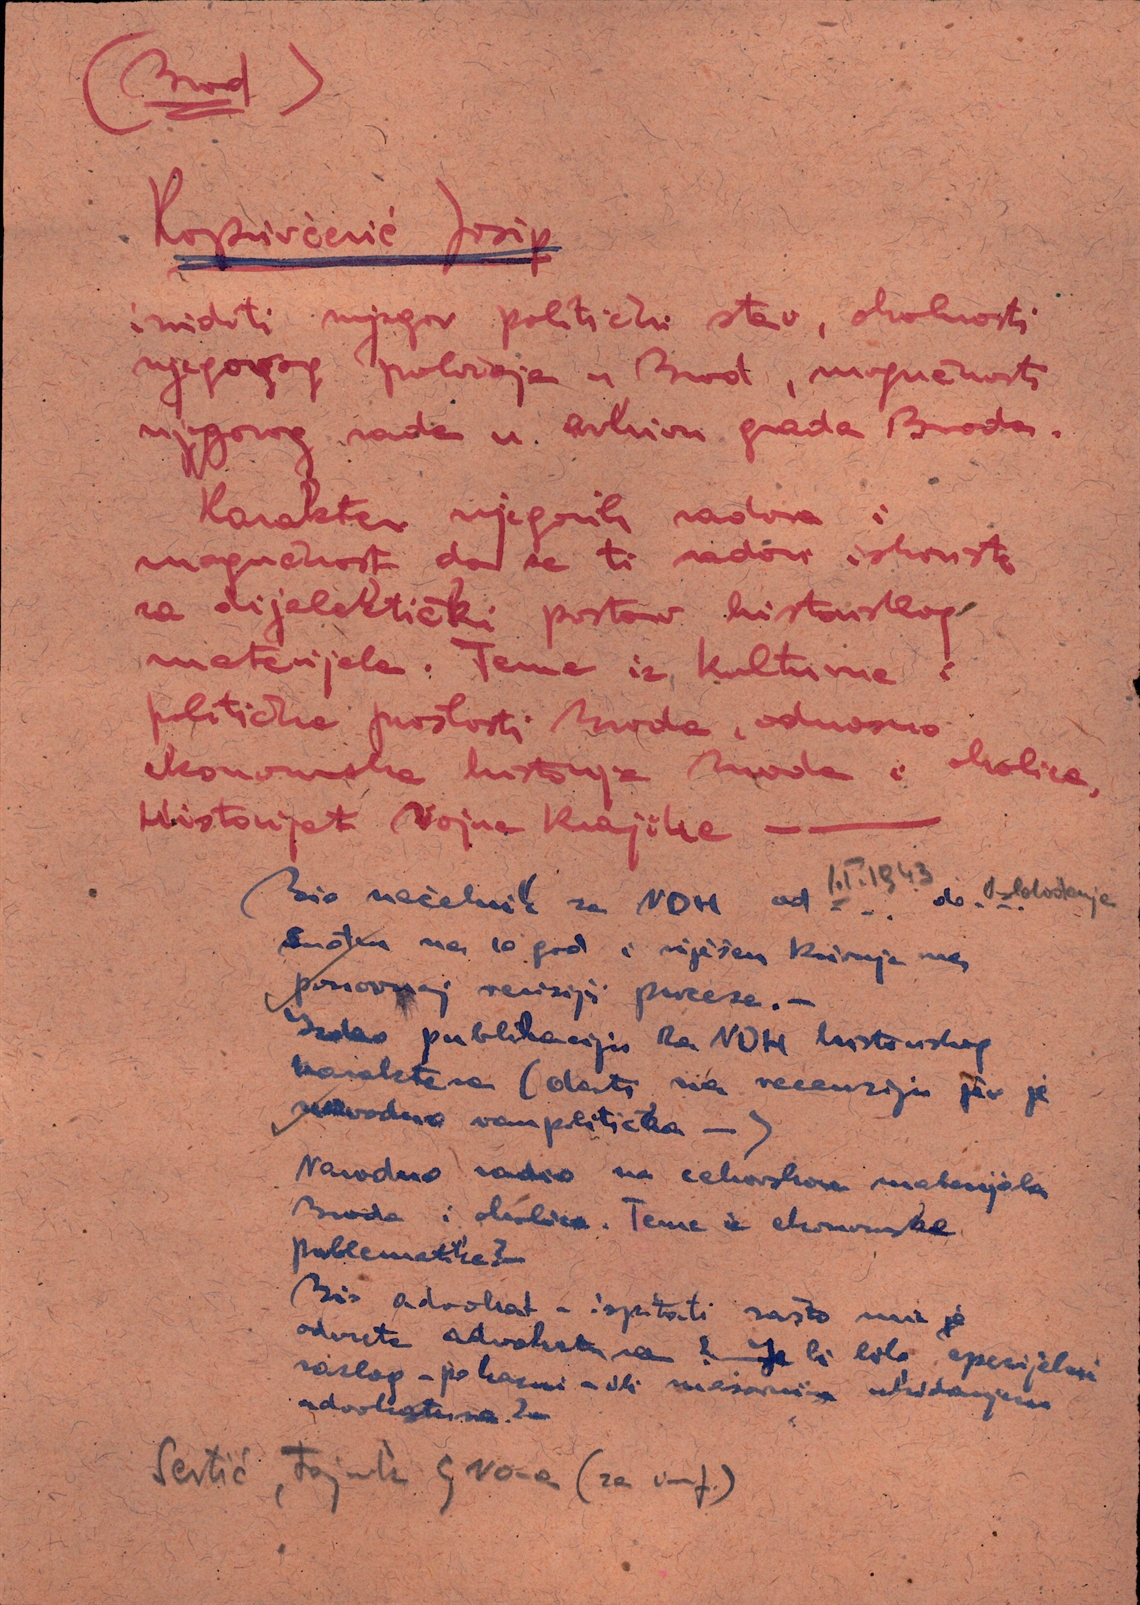 (Brod)
Koprivčević Josip
izviditi njegov politički stav, okolnosti
njegovog položaja u Brod, mogućnosti
njegovog rada u arhivu grada Broda.
Karakter njegovih radova i
mogućnost da se ti radovi iskoriste
za dijelektički postav historiskog
materijala. Teme iz kulturne i
političke prošlosti Broda, odnosno
ekonomska historija Broda i okolice,
Historijat Vojne Krajine —
Bio načelnik za NDH od 1.I.1943 do oslobođenja
Suđen na 10 god i riješen krivnje na
ponovnoj reviziji procesa. —
Izdao publikaciju za NDH historiskog
karaktera (dati na recenziju jer je
navodno vanpolitička —)
Navodno radio na cehovskom materijalu
Broda i okolice. Teme iz ekonomske
problematike? —
Bio advokat - ispitati zašto mu je
oduzeta advokatura? — Je li bilo specijalni
razlog - pokazni - ili masovnim ukidanjem
advokatura? —
Sertić, (za inf.)